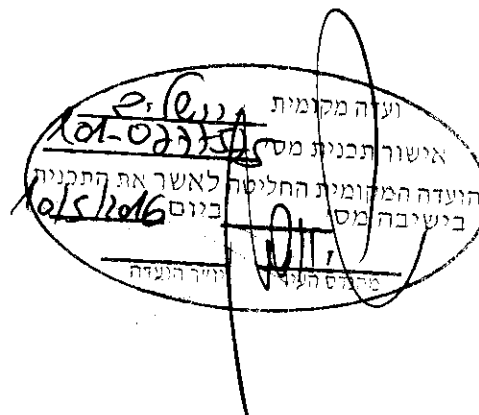 ועדה מקומית
אישור תכנית מס'
הועדה המקומית החליטה לאשר את התכנית
בישיבה מס' ביום 10/5/2016
מהנדס העיר יו"ר הועדה